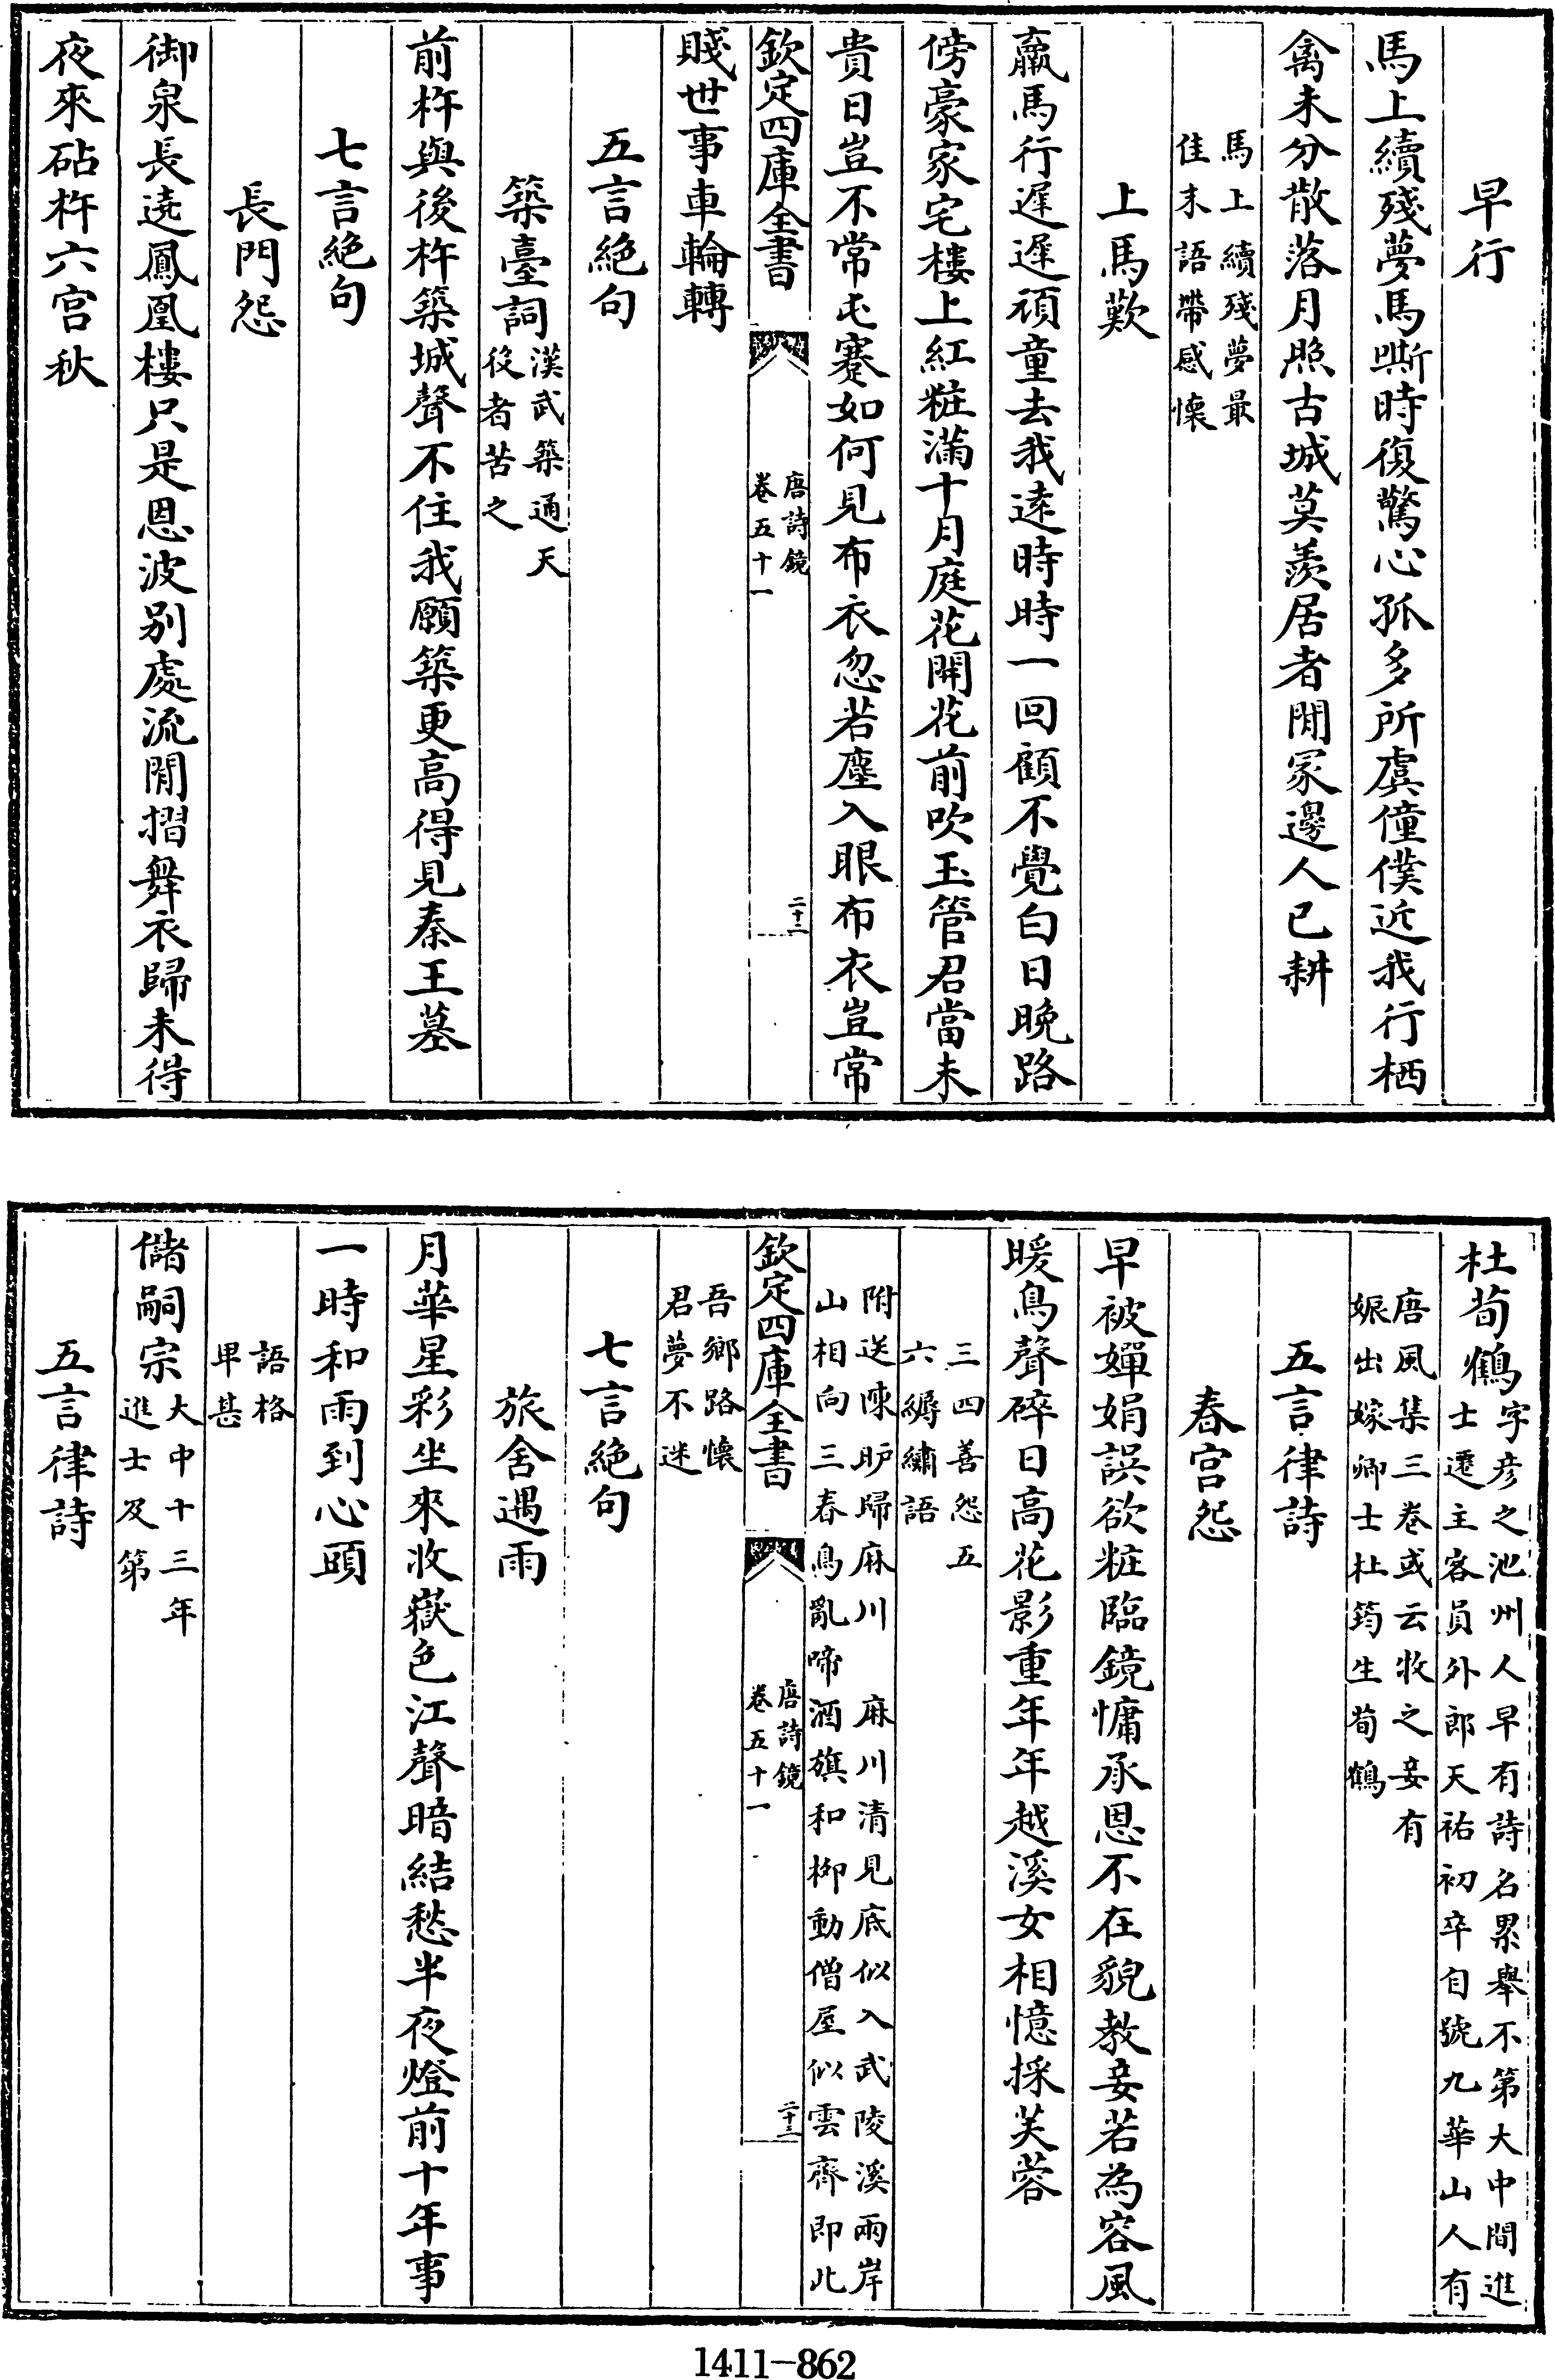 早行
馬上續殘夢馬嘶時復驚心孤多所虞僮僕近我行栖
禽未分散落月照古城莫羨居者閒冢邊人已耕
馬上續殘夢最
佳未語帶感懷
上馬歎
羸馬行遲遲頑童去我遠時時一回顧不覺白日晚路
傍豪家宅樓上紅粧滿十月庭花開花前吹玉管君當未
貴日豈不常屯蹇如何見布衣忽若塵入眼布衣豈常
欽定四庫全書
唐詩鏡
卷五十一
二十二
賤世事車輪轉
五言絶句
築臺詞漢武築通天
役者苦之
前杵與後杵築城聲不住我願築更高得見秦王墓
七言絶句
長門怨
御泉長遶鳳凰樓只是恩波别處流閒摺舞衣歸未得
夜來砧杵六宫秋
杜荀鶴字彦之池州人早有詩名累舉不第大中間進
士遷主客員外郎天祐初卒自號九華山人有
唐風集三卷或云牧之妾有
娠出嫁卿士杜筠生荀鶴
五言律詩
春宫怨
早被嬋娟誤欲粧臨鏡慵承恩不在貌教妾若為容風
暖鳥聲碎日高花影重年年越溪女相憶採芙蓉
三四善怨五
六縟繡語
附送陳昈歸麻川 麻川清見底似入武陵溪兩岸
山相向三春鳥亂啼酒旗和柳動僧屋似雲齊即此
欽定四庫全書
唐詩鏡
卷五十一
二十三
吾鄉路懷
君夢不迷
七言絶句
旅舍遇雨
月華星彩坐來收嶽色江聲暗結愁半夜燈前十年事
一時和雨到心頭
語格
甲甚
儲嗣宗大中十三年
進士及第
五言律詩
1411-862